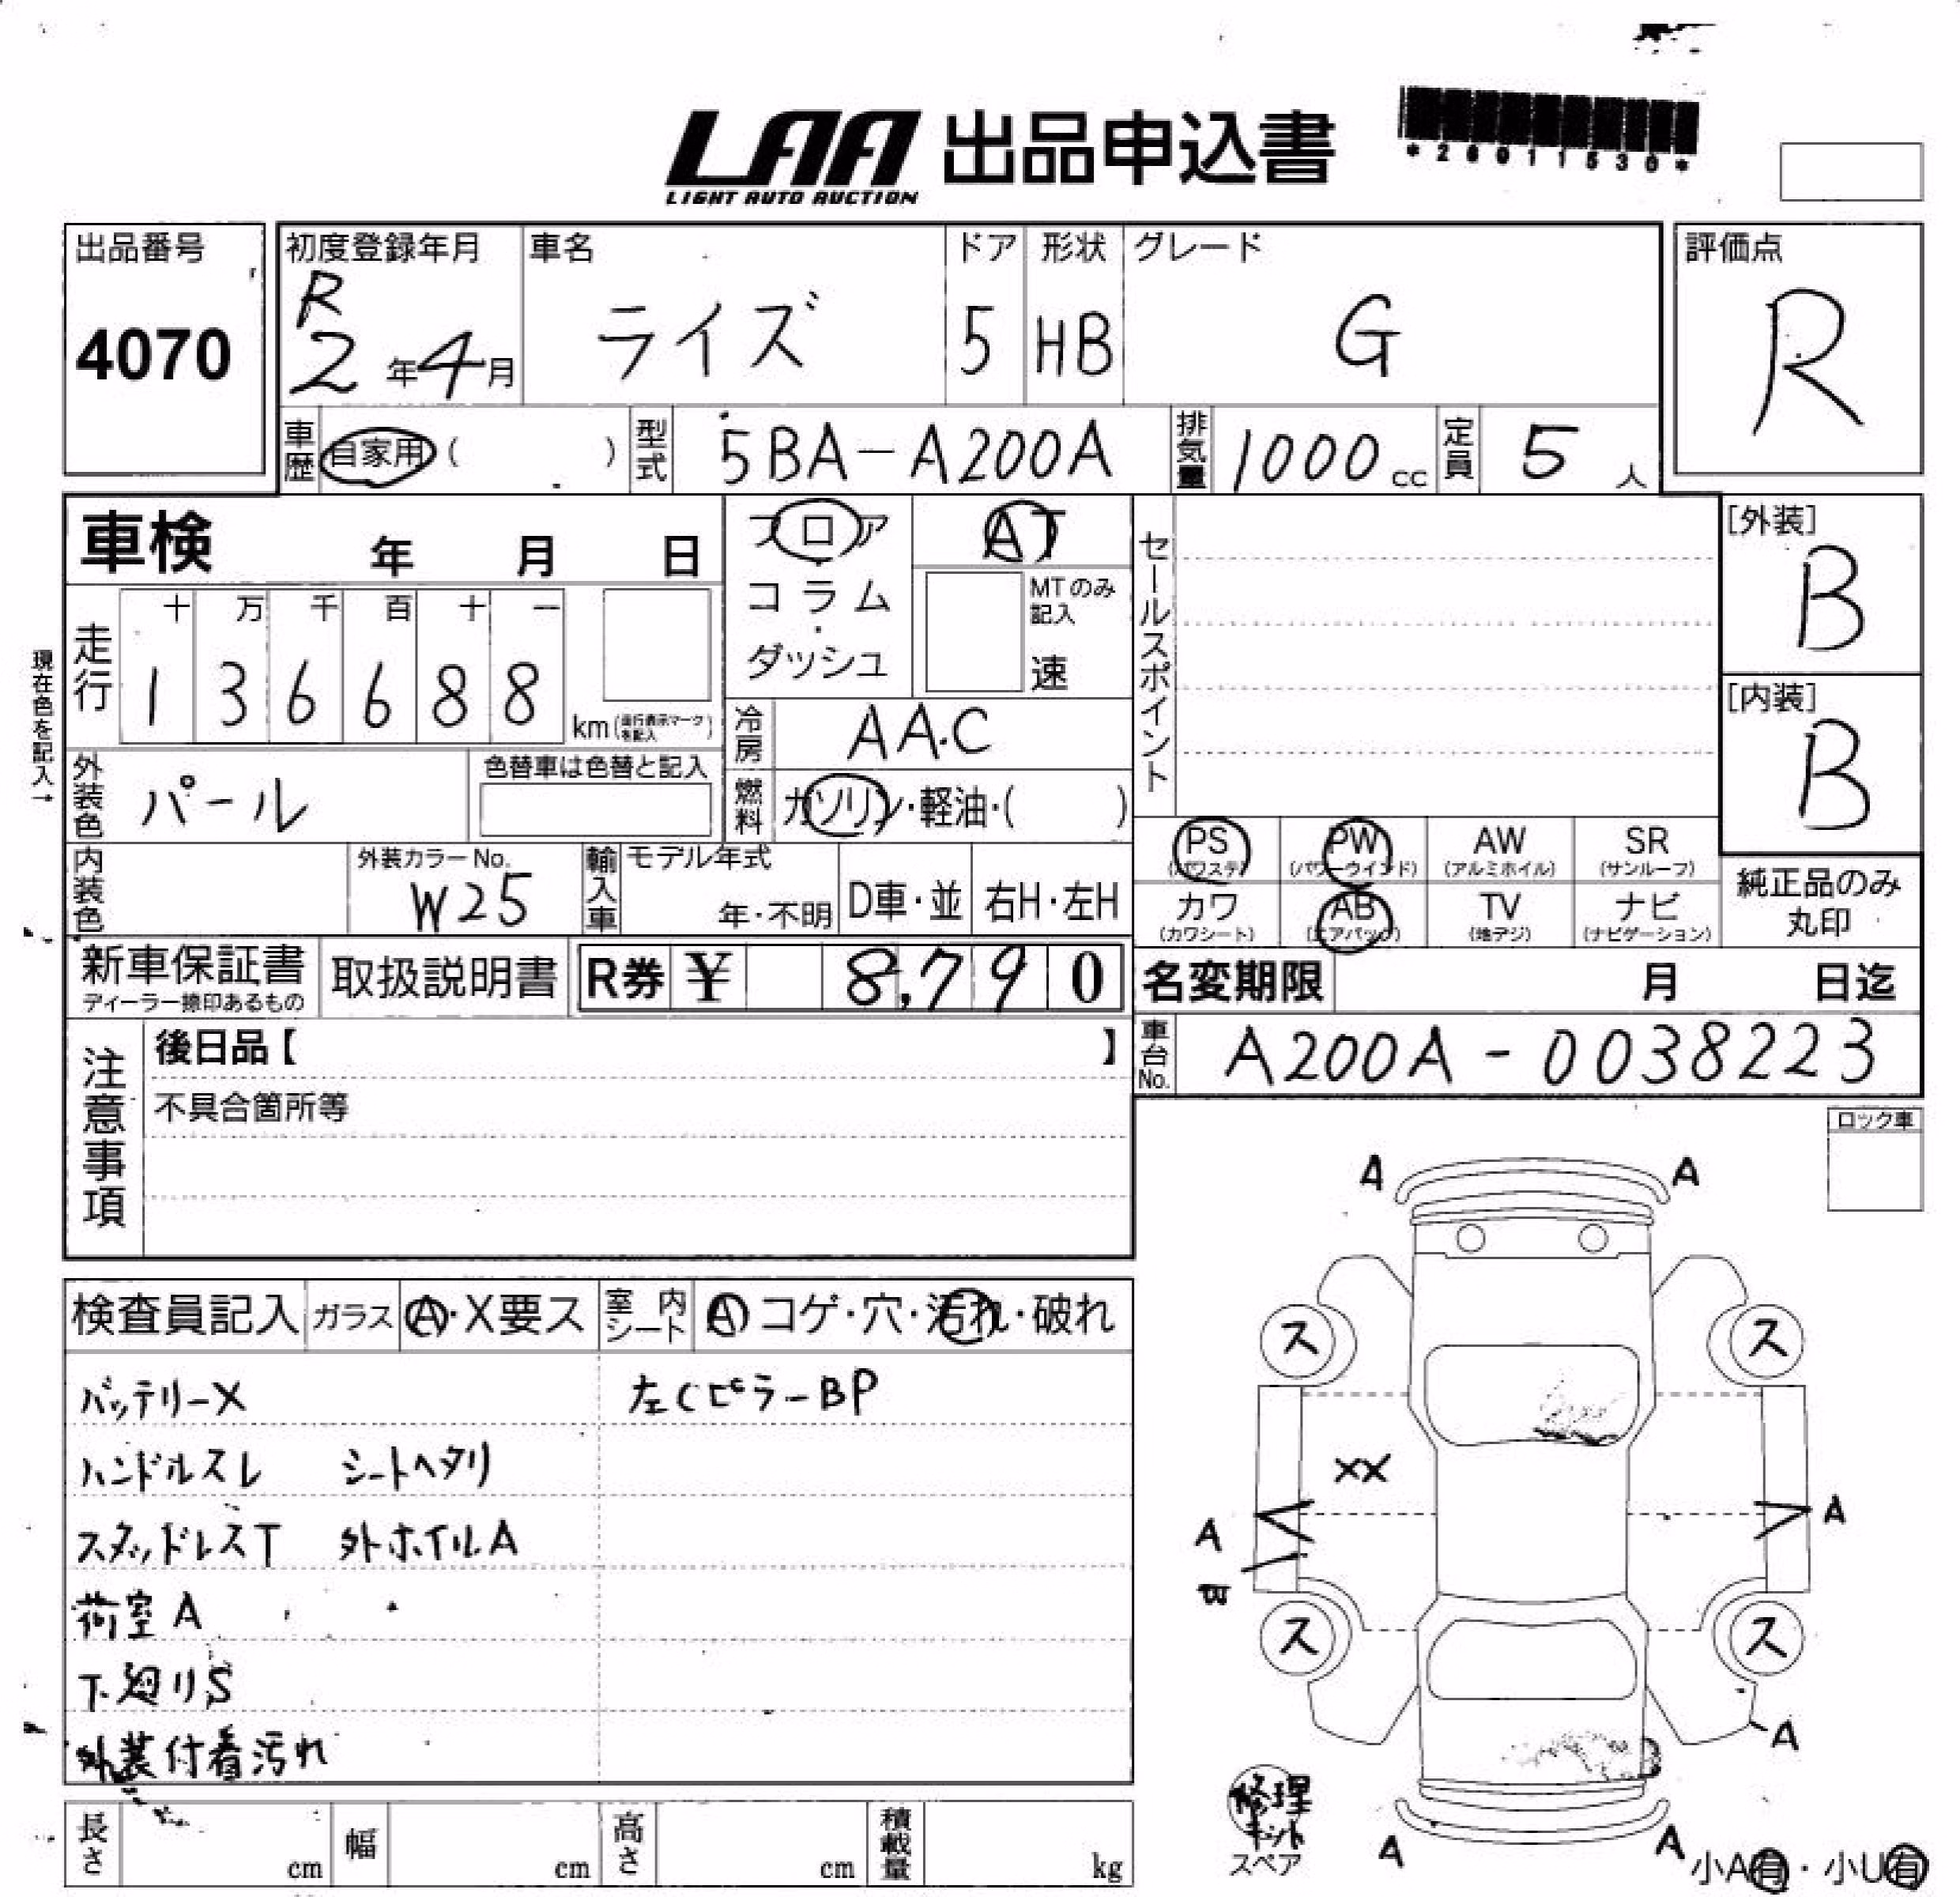 LAA 出品申込書
LIGHT AUTO AUCTION
*26011530*
出品番号
4070
初度登録年月
R
2年4月
車名
ライズ
ドア
5
形状
HB
グレード
G
評価点
R
車歴
自家用 ( )
型式
5BA-A200A
排気量
1000 cc
定員
5 人
車検 年 月 日
フロア
コラム
ダッシュ
AT
MTのみ記入
速
セールスポイント
[外装]
B
[内装]
B
現在色を記入→
走行
十 万 千 百 十 一
1 3 6 6 8 8
km (走行表示マークを記入)
冷房
AAC
外装色
パール
色替車は色替と記入
燃料
ガソリン・軽油・( )
内装色
外装カラーNo.
W25
輸入車
モデル年式
年・不明
D車・並
右H・左H
PS
(パワステ)
PW
(パワーウインド)
AW
(アルミホイル)
SR
(サンルーフ)
カワ
(カワシート)
AB
(エアバッグ)
TV
(地デジ)
ナビ
(ナビゲーション)
純正品のみ
丸印
新車保証書
ディーラー捺印あるもの
取扱説明書
R券 ¥ 8,790
名変期限 月 日迄
車台No.
A200A-0038223
注意事項
後日品【 】
不具合箇所等
ロック車
検査員記入
ガラス
A・X要ス
室内シート
A コゲ・穴・汚れ・破れ
バッテリーX
左CピラーBP
ハンドルスレ シートヘタリ
スタッドレスT 外ホイルA
荷室A
下廻りS
外装付着汚れ
A A
ス ス
XX
A A
ス ス
A
A A
修理
キット
スペア
小A有・小U有
長さ cm
幅 cm
高さ cm
積載量 kg